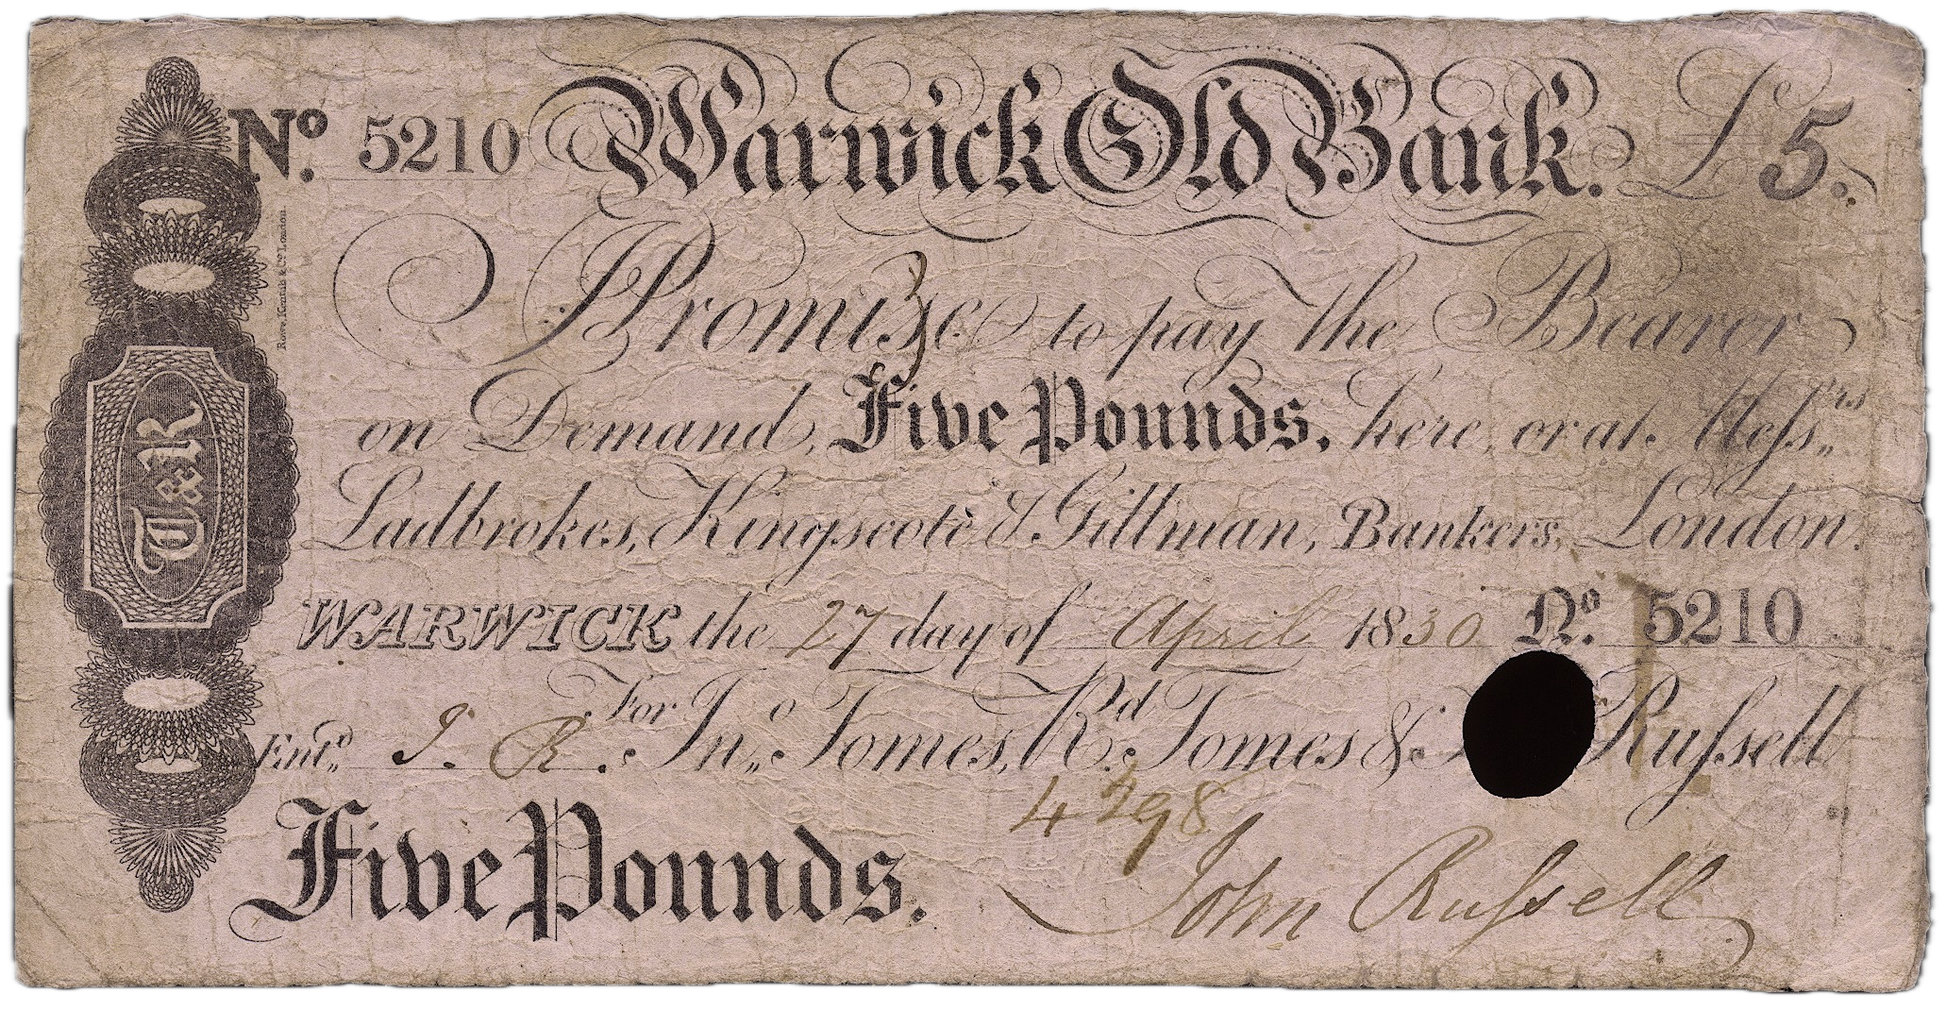 No. 5210 Warwick Old Bank. £5.
I Promise to pay the Bearer
on Demand, Five Pounds, here, or at Messrs
Ladbrokes, Kingscote & Gillman, Bankers, London.
WARWICK the 27 day of April 1830 No. 5210
For Jno. Tomes, Rd. Tomes & Russell
Entd. J. R.
4298
Five Pounds. John Russell
T&R
Rowe, Kentish & Co. London